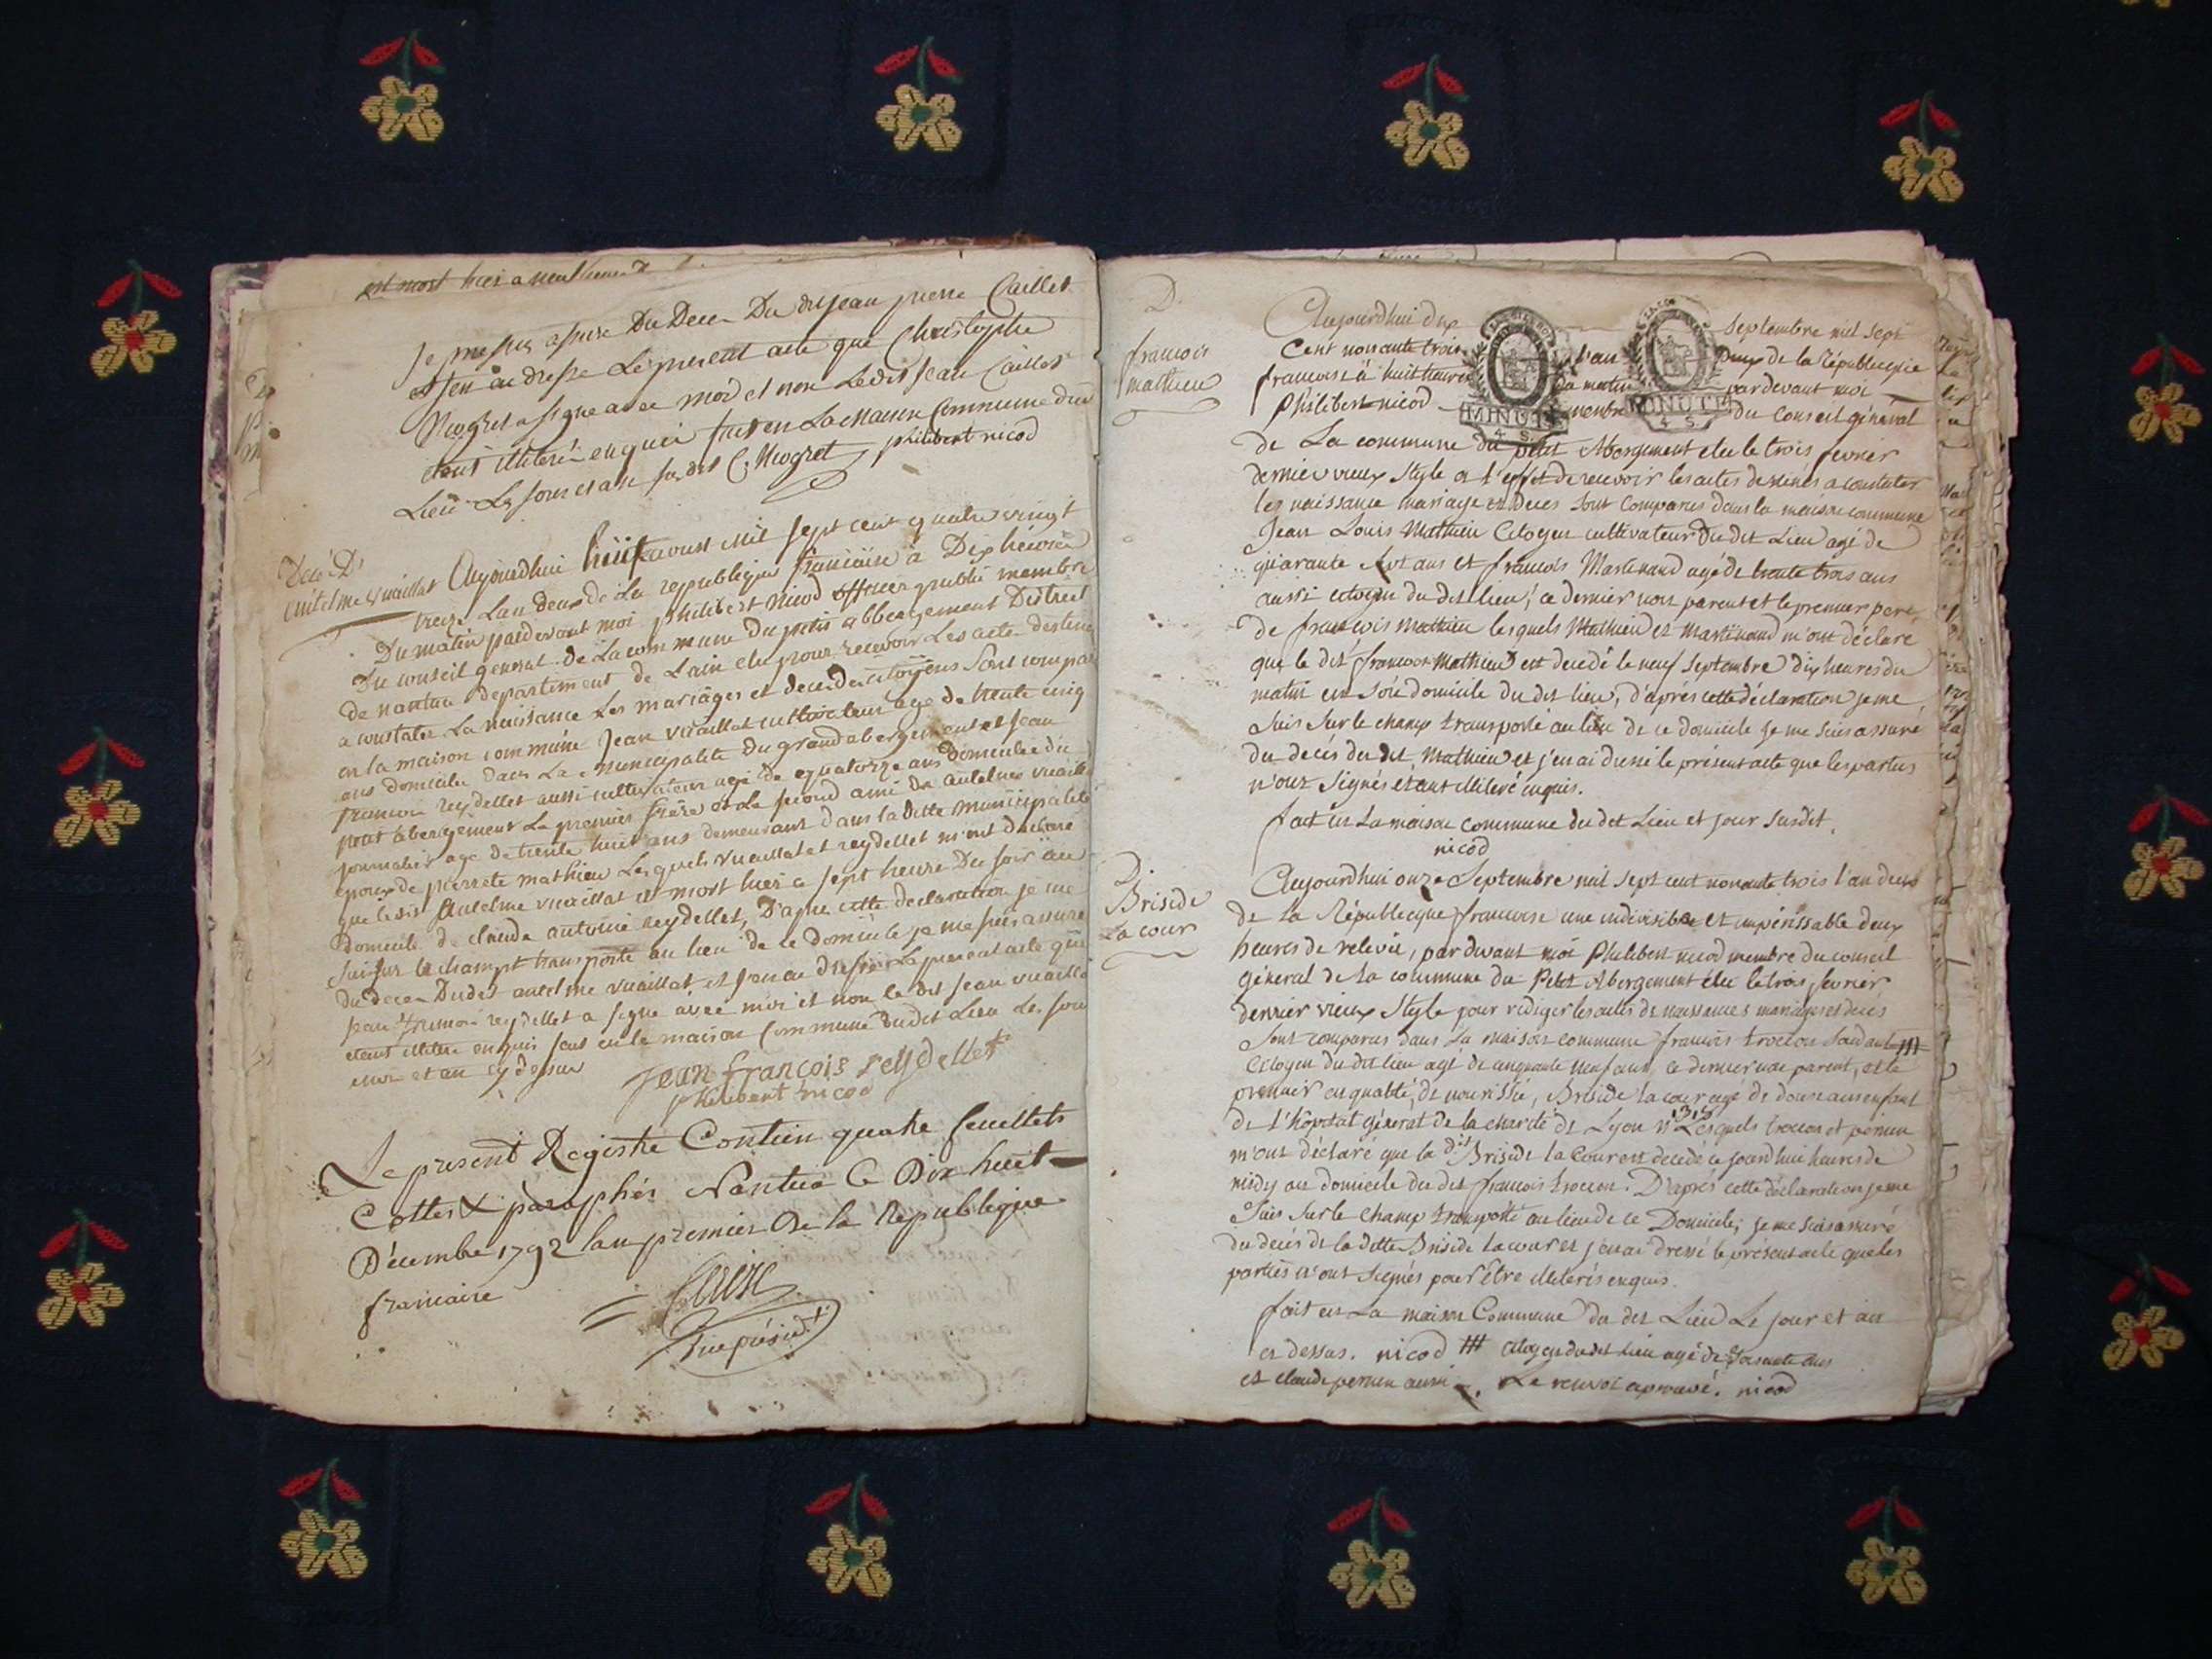 est mort hier a neuf heure
Je me suis assure Du Deces Du dit jean pierre Caillet
et jen ai dresse Le present acte que Christophe
Nogret a signe avec moi et non Le dit Jean Caillet
etant illiteré enquis fait en La maison Commune dud
Lieu Les jour et an susdit C. Nogret philibert nicod
Décè D'
antelme vuaillat
Aujourdhui huit aoust mil sept cent quatre vingt
treize Lan deux de La republique francaise à Dix heures
Du matin pardevant moi philibert nicod officier public membre
Du conseil general de La commune Du petit abbergement District
de nantua departement de Lain elu pour recevoir Les acte destines
a constater La naissance Les mariages et deces des citoyens sont compar
en la maison commune Jean vuaillat cultivateur age de trente cinq
ans domicilie dans La municipalite du grand abergement et jean
francois reydellet aussi cultivateur age de quatorze ans domicilie du
petit abergement Le premier frere et Le second ami de antelme vuaillat
journalier age de trente huit ans demeurant dans la ditte municipalite
epoux de pierrete mathieu Lesquels vuaillat et reydellet m'ont declaré
que le dit Antelme vuaillat est mort hier a sept heure Du soir au
Domicile de claude antoine reydellet, D'apres cette declaration je me
suis sur le champt transporté au lieu de ce domicile je me suis assure
du deces Dudit antelme vuaillat et jen ai dressé Le present acte que
jean francois reydellet a signe avec moi et non le dit jean vuaillat
etant illitere enquis fait en la maison Commune dudit Lieu Les jour
mois et an cy dessus
jean françois reydellet
philibert nicod
Le present Registre Contien quatre feuillets
Cottes & paraphés Nantua Ce Dix huit
Décembre 1792 lan premier De la Republique
francaise
vice présid.t
D.
francois
mathieu
Aujourdhui dix septembre mil sept
Cent nonante trois l'an deux de la Républicque
francoise à huit heures du matin pardevant moi
Philibert nicod membre du Conseil général
MINUTE
4 S.
MINUTE
4 S.
de La commune du petit Abergement elu le trois fevrier
dernier vieux Style a l'effet de recevoir les actes destinés a constater
les naissance mariage et Deces sont comparus dans la maison commune
Jean Louis Mathieu Citoyen cultivateur Du dit Lieu agé de
quarante sept ans et francois Martinand agé de trente trois ans
aussi citoyen du dit lieu, ce dernier non parent et le premier pere
de francois mathieu lesquels Mathieu et Martinand m'ont déclaré
que le dit francois Mathieu est decedé le neuf septembre dix heures du
matin en son domicile du dit lieu, d'aprés cette déclaration je me
suis sur le champ transporté au lieu de ce domicile je me suis assuré
du decés du dit Mathieu et j'en ai dressé le présent acte que les parties
n'ont signés etant illiteré enquis.
fait en La maison commune du dit Lieu et jour susdit.
nicod
D.
Briside
La cour
Aujourdhui onze Septembre mil sept cent nonante trois l'an deux
de La Républicque francoise une indivisible et impérissable deux
heures de relevée, pardevant moi Philibert nicod membre du conseil
géneral de la commune du Petit Abergement elu le trois fevrier
dernier vieux Style pour rediger les actes de naissances mariages et decés
Sont comparus dans La maison commune francois trocon
Citoyen du dit lieu agé de cinquante neuf ans, ce dernier non parent, et le
premier en qualité, de nourissié, Briside la cour agé de douze ans enfant
de l'hôpital géneral de la charité de Lyon n° Lesquels trocon et
m'ont déclaré que la d. Briside la Cour est decedé ce jourdhui heures de
midy au domicile du dit francois trocon. D'aprés cette déclaration je me
Suis sur le champ transporté au lieu de ce Domicile, je me suis assuré
du decés de la ditte Briside La cour et j'en ai dressé le présent acte que les
parties n'ont signés pour être illiterés enquis.
fait en La maison Commune du dit Lieu Le jour et an
ci dessus. nicod ### citoyen du dit lieu agé de soixante ans
et claude aussi. Le renvoi aprouvé. nicod